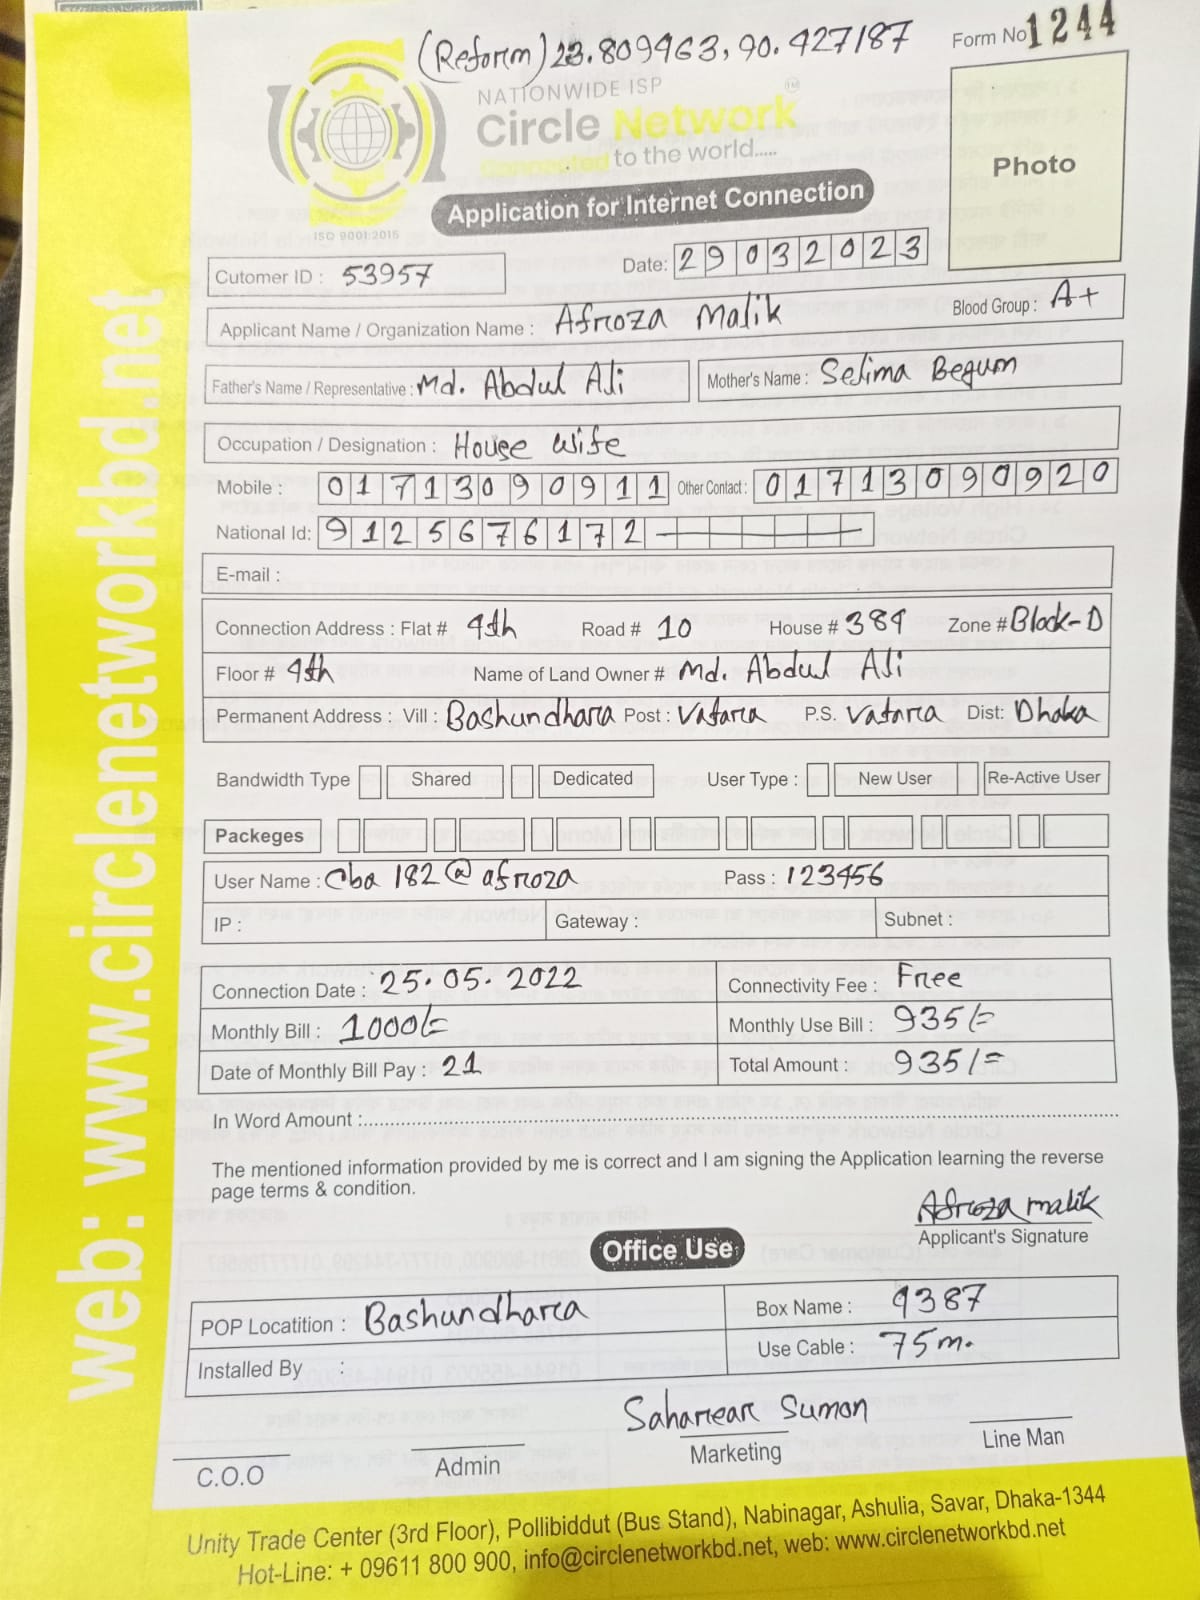 (Reform) 23.809463, 90.427187
Form No 1244
NATIONWIDE ISP
Circle Network TM
Connected to the world.....
Photo
Application for Internet Connection
ISO 9001:2015
Cutomer ID : 53957
Date: 29032023
Applicant Name / Organization Name : Afroza Malik
Blood Group : A+
Father's Name / Representative : Md. Abdul Ali
Mother's Name : Selima Begum
Occupation / Designation : House wife
Mobile : 01713090911 Other Contact : 01713090920
National Id: 9125676172
E-mail :
Connection Address : Flat # 4th Road # 10 House # 384 Zone # Block-D
Floor # 4th Name of Land Owner # Md. Abdul Ali
Permanent Address : Vill : Bashundhara Post : Vatara P.S. Vatara Dist: Dhaka
Bandwidth Type Shared Dedicated User Type : New User Re-Active User
Packeges
User Name : Cba 182@afroza Pass : 123456
IP : Gateway : Subnet :
Connection Date : 25.05.2022 Connectivity Fee : Free
Monthly Bill : 1000/= Monthly Use Bill : 935/=
Date of Monthly Bill Pay : 21 Total Amount : 935/=
In Word Amount :
The mentioned information provided by me is correct and I am signing the Application learning the reverse
page terms & condition.
Afroza malik
Applicant's Signature
Office Use
POP Locatition : Bashundhara Box Name : 4387
Installed By : Use Cable : 75m.
Saharear Sumon
C.O.O Admin Marketing Line Man
Unity Trade Center (3rd Floor), Pollibiddut (Bus Stand), Nabinagar, Ashulia, Savar, Dhaka-1344
Hot-Line: + 09611 800 900, info@circlenetworkbd.net, web: www.circlenetworkbd.net
web: www.circlenetworkbd.net